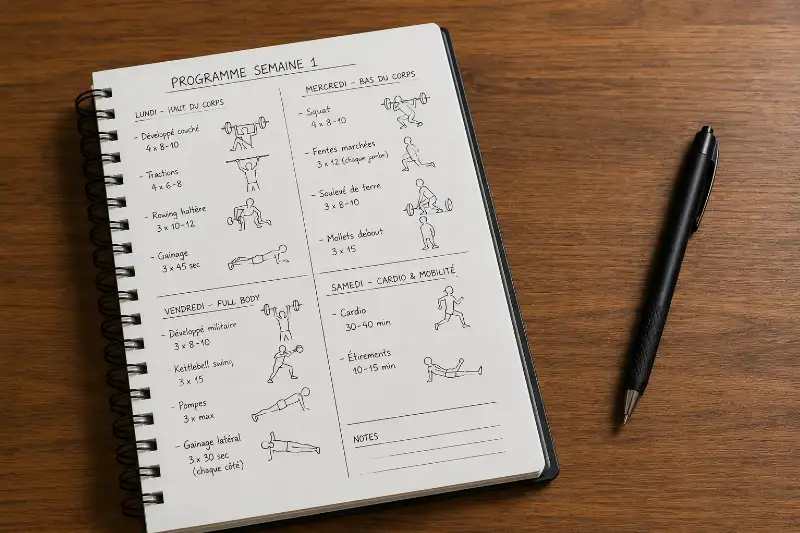 PROGRAMME SEMAINE 1
LUNDI - HAUT DU CORPS
- Développé couché
4 x 8-10
- Tractions
4 x 6-8
- Rowing haltère
3 x 10-12
- Gainage
3 x 45 sec
MERCREDI - BAS DU CORPS
- Squat
4 x 8-10
- Fentes marchées
3 x 12 (chaque jambe)
- Soulevé de terre
3 x 8-10
- Mollets debout
3 x 15
VENDREDI - FULL BODY
- Développé militaire
3 x 8-10
- Kettlebell swing
3 x 15
- Pompes
3 x max
- Gainage latéral
3 x 30 sec
(chaque côté)
SAMEDI - CARDIO & MOBILITÉ
- Cardio
30-40 min
- Étirements
10-15 min
NOTES